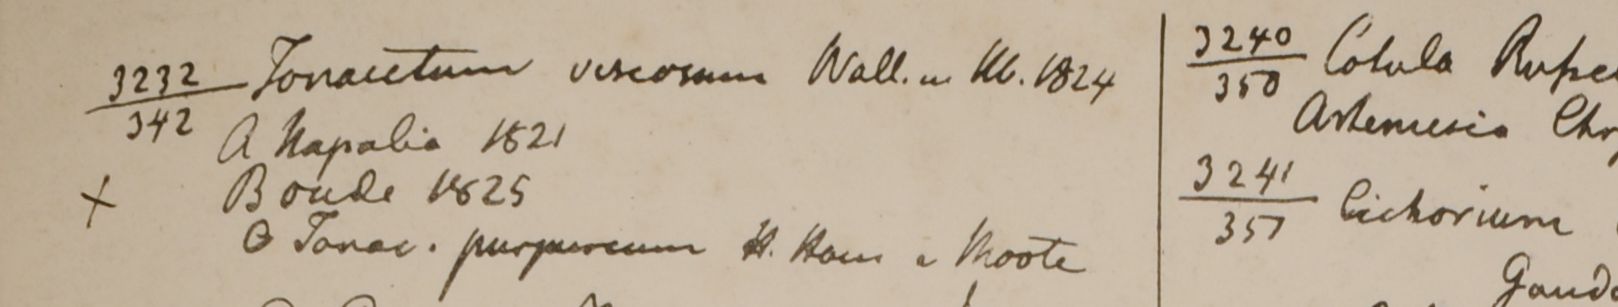 3232
342
Tanacetum viscosum Wall. in Hb. 1824
A Napalia 1821
X B oude 1825
C Tanac. purpureum H. Ham e Mooti
3240
350
Cotula
Artemisia
3241
351
Cichorium